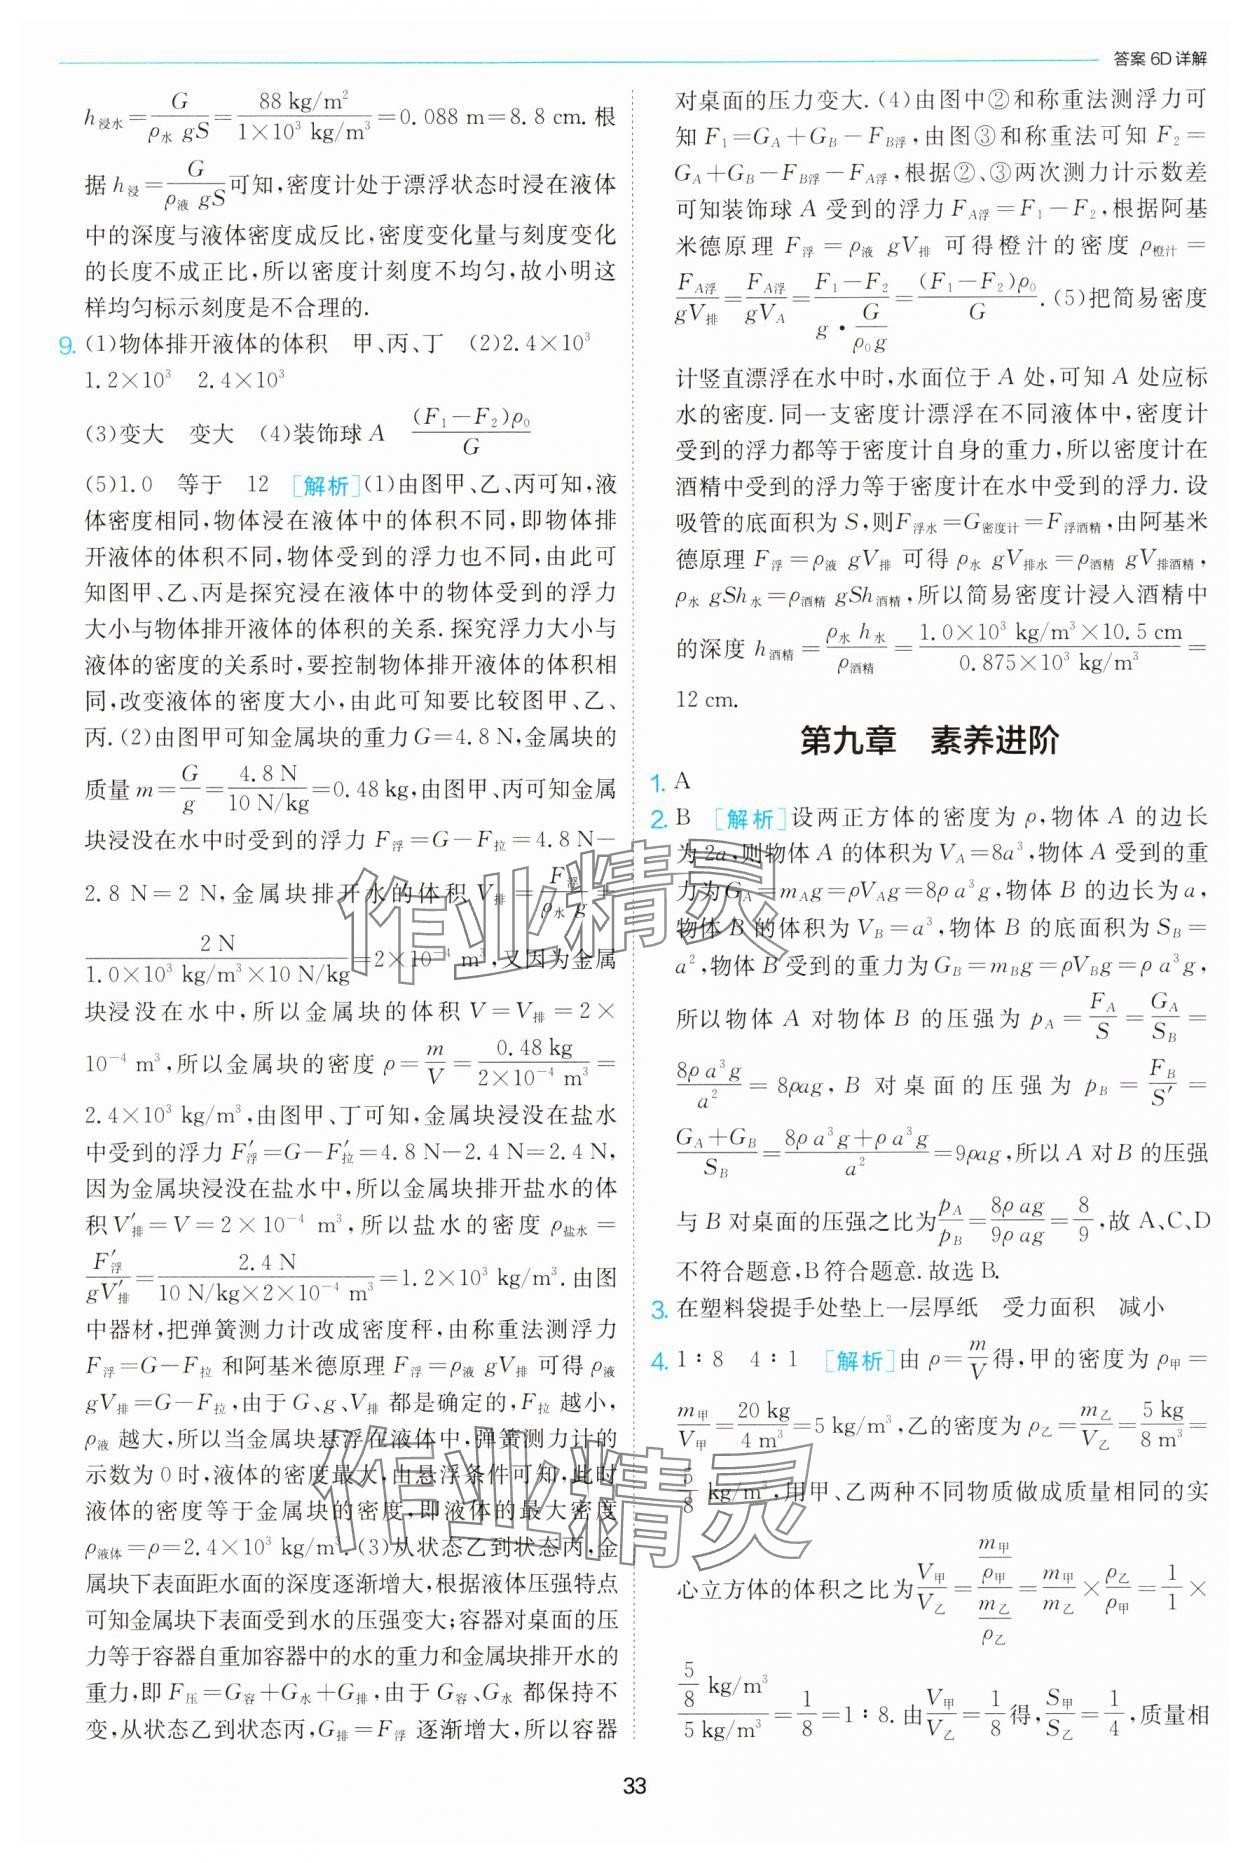 答案 6D 详解
h浸水=G/(ρ水 gS)=(88 kg/m²)/(1×10³ kg/m³)=0.088 m=8.8 cm. 根
据 h浸=G/(ρ液 gS)可知,密度计处于漂浮状态时浸在液体
中的深度与液体密度成反比,密度变化量与刻度变化
的长度不成正比,所以密度计刻度不均匀,故小明这
样均匀标示刻度是不合理的.
9. (1)物体排开液体的体积 甲、丙、丁 (2)2.4×10³
1.2×10³ 2.4×10³
(3)变大 变大 (4)装饰球A (F₁−F₂)ρ₀/G
(5)1.0 等于 12 [解析](1)由图甲、乙、丙可知,液
体密度相同,物体浸在液体中的体积不同,即物体排
开液体的体积不同,物体受到的浮力也不同,由此可
知图甲、乙、丙是探究浸在液体中的物体受到的浮力
大小与物体排开液体的体积的关系.探究浮力大小与
液体的密度的关系时,要控制物体排开液体的体积相
同,改变液体的密度大小,由此可知要比较图甲、乙、
丙.(2)由图甲可知金属块的重力G=4.8 N,金属块的
质量 m=G/g=(4.8 N)/(10 N/kg)=0.48 kg,由图甲、丙可知金属
块浸没在水中时受到的浮力 F浮=G−F拉=4.8 N−
2.8 N=2 N,金属块排开水的体积 V排=F浮/(ρ水 g)=
(2 N)/(1.0×10³ kg/m³×10 N/kg)=2×10⁻⁴ m³,又因为金属
块浸没在水中,所以金属块的体积 V=V排=2×
10⁻⁴ m³,所以金属块的密度 ρ=m/V=(0.48 kg)/(2×10⁻⁴ m³)=
2.4×10³ kg/m³,由图甲、丁可知,金属块浸没在盐水
中受到的浮力 F′浮=G−F′拉=4.8 N−2.4 N=2.4 N,
因为金属块浸没在盐水中,所以金属块排开盐水的体
积V′排=V=2×10⁻⁴ m³,所以盐水的密度 ρ盐水=
F′浮/(gV′排)=(2.4 N)/(10 N/kg×2×10⁻⁴ m³)=1.2×10³ kg/m³.由图
中器材,把弹簧测力计改成密度秤,由称重法测浮力
F浮=G−F拉 和阿基米德原理 F浮=ρ液 gV排 可得 ρ液
gV排=G−F拉,由于 G、g、V排 都是确定的,F拉 越小,
ρ液 越大,所以当金属块悬浮在液体中,弹簧测力计的
示数为 0 时,液体的密度最大,由悬浮条件可知,此时
液体的密度等于金属块的密度,即液体的最大密度
ρ液体=ρ=2.4×10³ kg/m³.(3)从状态乙到状态丙,金
属块下表面距水面的深度逐渐增大,根据液体压强特点
可知金属块下表面受到水的压强变大;容器对桌面的压
力等于容器自重加容器中的水的重力和金属块排开水的
重力,即 F压=G容+G水+G排,由于 G容、G水 都保持不
变,从状态乙到状态丙,G排=F浮 逐渐增大,所以容器
对桌面的压力变大.(4)由图中②和称重法测浮力可
知 F₁=G_A+G_B−F_B浮,由图③和称重法可知 F₂=
G_A+G_B−F_B浮−F_A浮,根据②、③两次测力计示数差
可知装饰球 A 受到的浮力 F_A浮=F₁−F₂,根据阿基
米德原理 F浮=ρ液 gV排 可得橙汁的密度 ρ橙汁=
F_A浮/(gV排)=F_A浮/(gV_A)=(F₁−F₂)/(g·G/(ρ₀g))=(F₁−F₂)ρ₀/G.(5)把简易密度
计竖直漂浮在水中时,水面位于 A 处,可知 A 处应标
水的密度.同一支密度计漂浮在不同液体中,密度计
受到的浮力都等于密度计自身的重力,所以密度计在
酒精中受到的浮力等于密度计在水中受到的浮力.设
吸管的底面积为 S,则F浮水=G密度计=F浮酒精,由阿基米
德原理 F浮=ρ液 gV排 可得 ρ水 gV排水=ρ酒精 gV排酒精,
ρ水 gSh水=ρ酒精 gSh酒精,所以简易密度计浸入酒精中
的深度 h酒精=(ρ水 h水)/ρ酒精=(1.0×10³ kg/m³×10.5 cm)/(0.875×10³ kg/m³)=
12 cm.
第九章 素养进阶
1. A
2. B [解析]设两正方体的密度为 ρ,物体 A 的边长
为 2a,则物体 A 的体积为 V_A=8a³,物体 A 受到的重
力为G_A=m_Ag=ρV_Ag=8ρ a³g,物体 B 的边长为 a,
物体 B 的体积为 V_B=a³,物体 B 的底面积为 S_B=
a²,物体 B 受到的重力为 G_B=m_Bg=ρV_Bg=ρ a³g,
所以物体 A 对物体 B 的压强为 p_A=F_A/S=G_A/S_B=
8ρ a³g/a²=8ρag,B 对桌面的压强为 p_B=F_B/S′=
(G_A+G_B)/S_B=(8ρ a³g+ρ a³g)/a²=9ρag,所以 A 对 B 的压强
与 B 对桌面的压强之比为p_A/p_B=8ρ ag/9ρ ag=8/9,故 A、C、D
不符合题意,B符合题意.故选 B.
3. 在塑料袋提手处垫上一层厚纸 受力面积 减小
4. 1∶8 4∶1 [解析]由 ρ=m/V得,甲的密度为 ρ甲=
m甲/V甲=(20 kg)/(4 m³)=5 kg/m³,乙的密度为 ρ乙=m乙/V乙=(5 kg)/(8 m³)=
5/8 kg/m³,用甲、乙两种不同物质做成质量相同的实
心立方体的体积之比为V甲/V乙=(m甲/ρ甲)/(m乙/ρ乙)=m甲/m乙×ρ乙/ρ甲=1/1×
(5/8 kg/m³)/(5 kg/m³)=1/8=1∶8.由V甲/V乙=1/8得,S甲/S乙=1/4,质量相
33
作业精灵
作业精灵